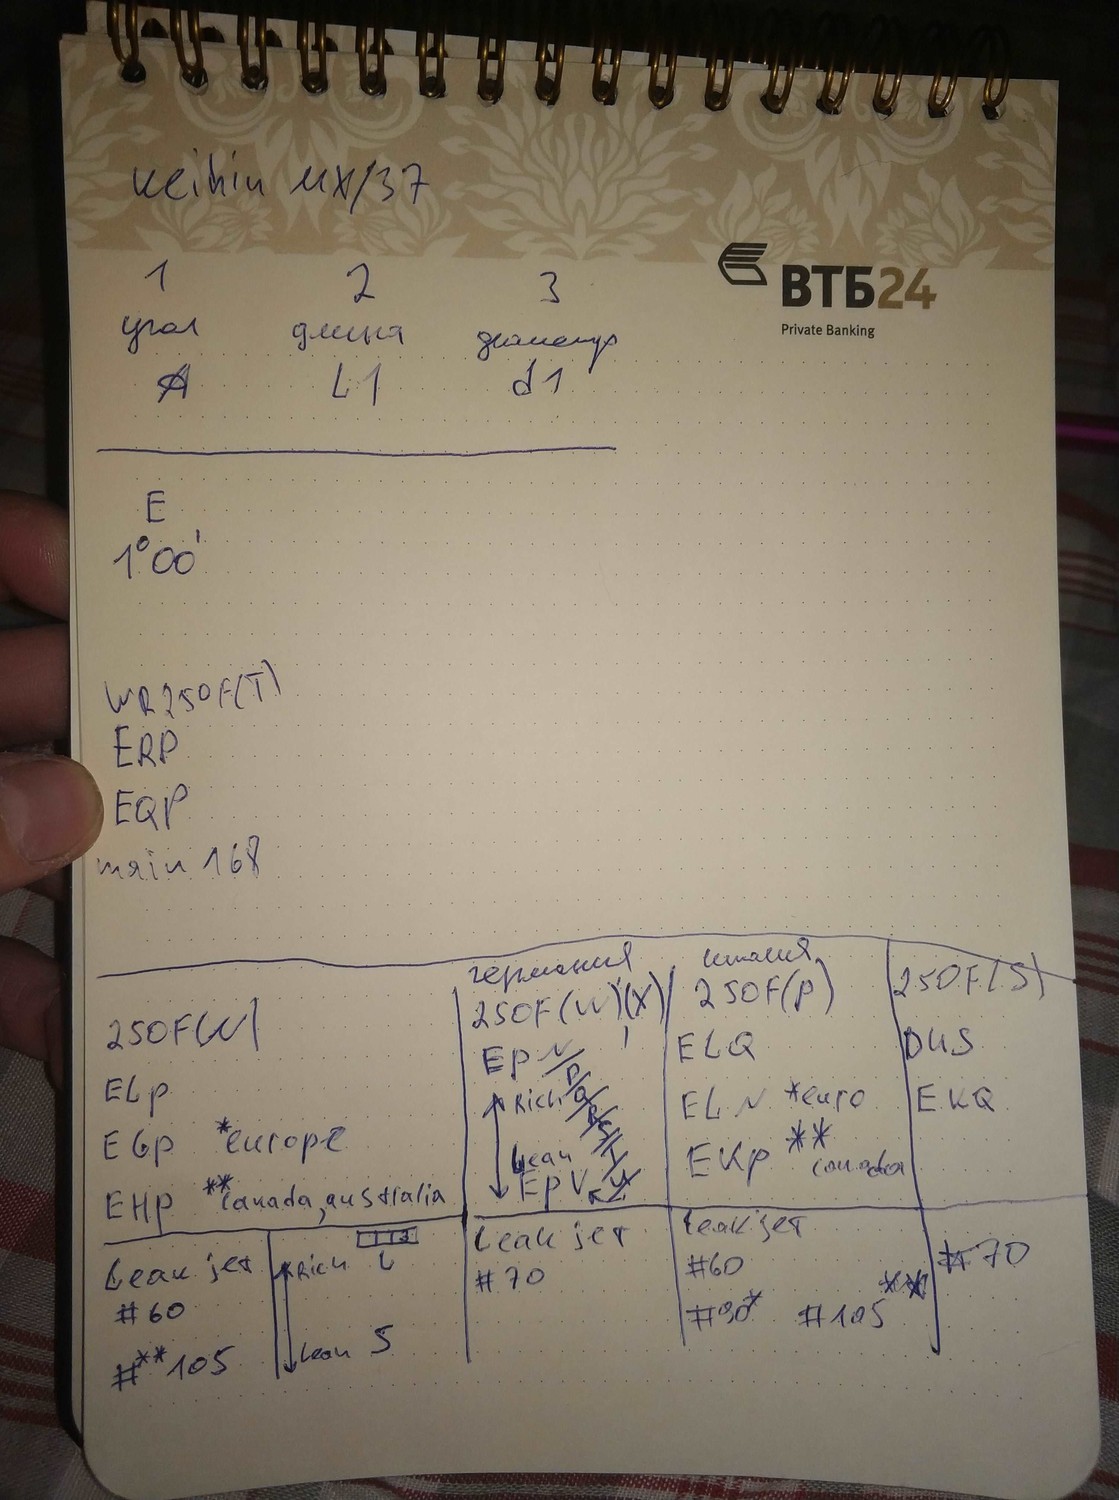 Keihin MX/37
1 2 3
угол длина диаметр
A L1 d1
ВТБ24
Private Banking
E
1°00'
WR250F(T)
ERP
EQP
main 168
250F(W)
ELP
EGP *europe
EHP **Canada, australia
Leak jet
#60
#**105
Rich L
Lean S
германия
250F(W)(X)
EPN/P/Q/R/S/T/
Rich
Lean
EPV
Leak jet
#70
италия
250F(P)
ELQ
ELN *euro
EKP ** Canada
Leak jet
#60
#90* #105**
250F(S)
EKQ
#70